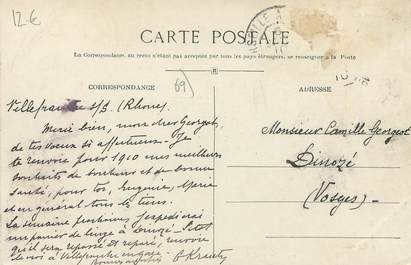 12.€
CARTE POSTALE
La Correspondance au recto n'est pas acceptée par tous les pays étrangers, se renseigner à la Poste
CORRESPONDANCE
69
ADRESSE
Villefranche s/S. (Rhône).
Merci bien, mon cher Georgeot,
de tes voeux si affectueux. Je
te renvoie pour 1910 mes meilleurs
souhaits de bonheur et de bonne
santé, pour toi, Eugénie, Marie
et en général tous les tiens.
La semaine prochaine j'expédierai
un panier de linge à
qu'il sera repassé et réparé, renvoie
le moi à Villefranche en gare.
Monsieur Camille Georgeot
Dinozé
(Vosges)